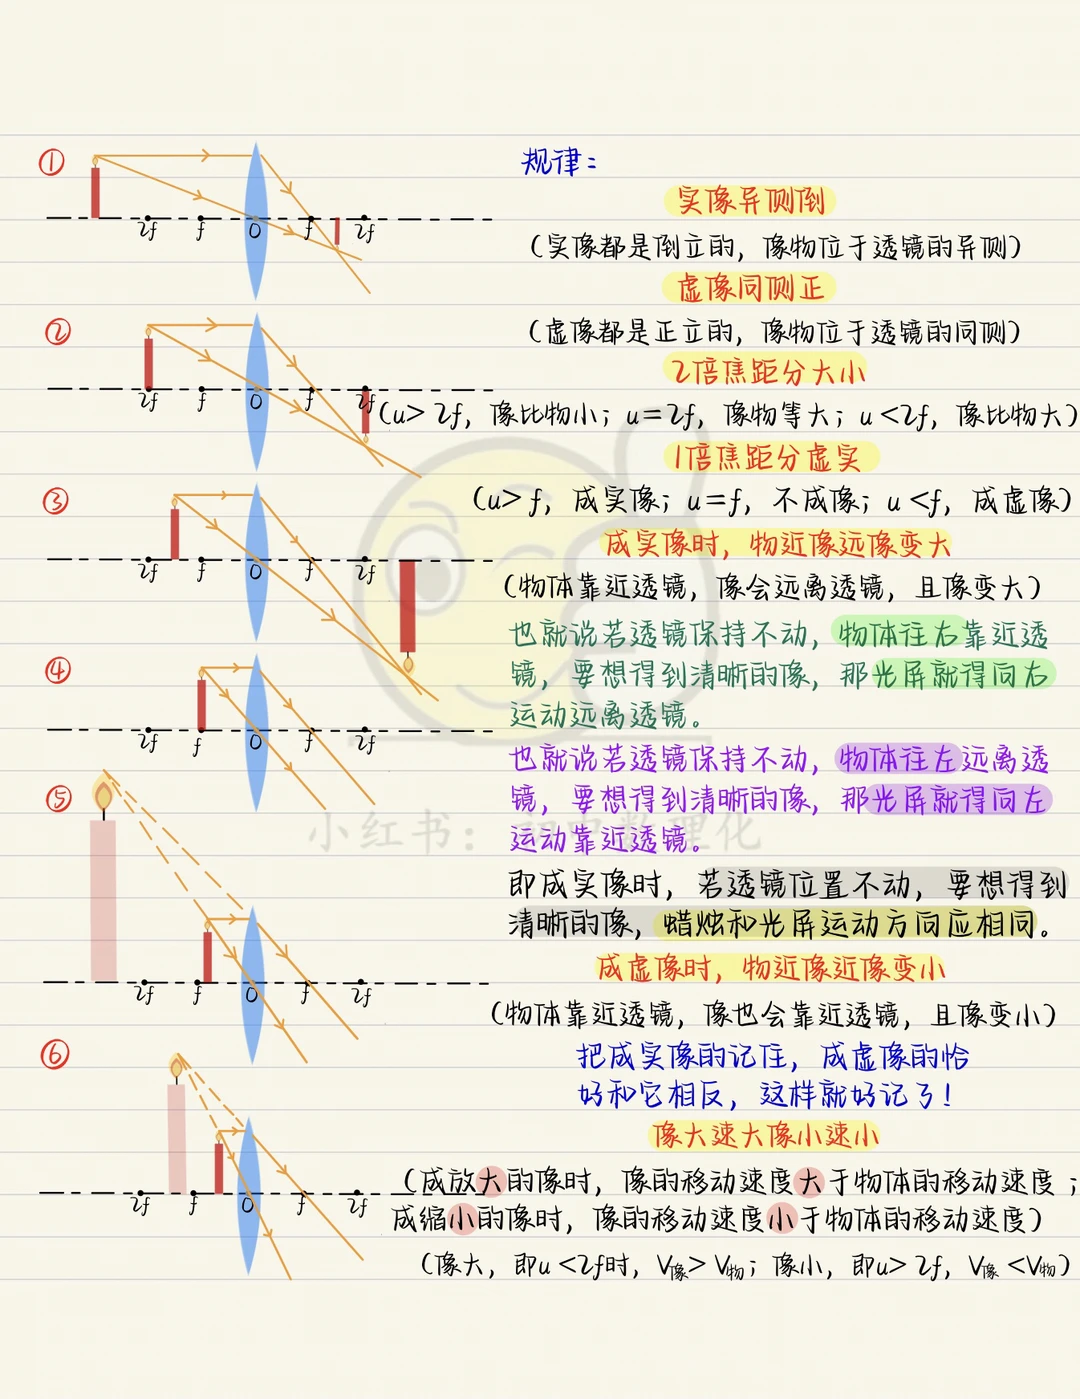 规律：
实像异侧倒
（实像都是倒立的，像物位于透镜的异侧）
虚像同侧正
（虚像都是正立的，像物位于透镜的同侧）
2倍焦距分大小
（u＞2f，像比物小；u＝2f，像物等大；u＜2f，像比物大）
1倍焦距分虚实
（u＞f，成实像；u＝f，不成像；u＜f，成虚像）
成实像时，物近像远像变大
（物体靠近透镜，像会远离透镜，且像变大）
也就说若透镜保持不动，物体往右靠近透
镜，要想得到清晰的像，那光屏就得向右
运动远离透镜。
也就说若透镜保持不动，物体往左远离透
镜，要想得到清晰的像，那光屏就得向左
运动靠近透镜。
即成实像时，若透镜位置不动，要想得到
清晰的像，蜡烛和光屏运动方向应相同。
成虚像时，物近像近像变小
（物体靠近透镜，像也会靠近透镜，且像变小）
把成实像的记住，成虚像的恰
好和它相反，这样就好记了！
像大速大像小速小
（成放大的像时，像的移动速度大于物体的移动速度；
成缩小的像时，像的移动速度小于物体的移动速度）
（像大，即u＜2f时，V像＞V物；像小，即u＞2f，V像＜V物）
①
2f f O f 2f
②
2f f O f 2f
③
2f f O f 2f
④
2f f O f 2f
⑤
2f f O f 2f
⑥
2f f O f 2f
小红书：初中数理化